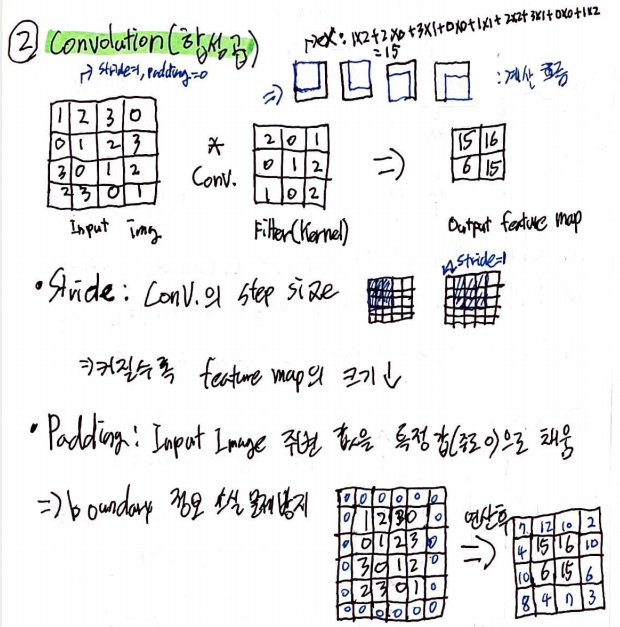 ② Convolution(합성곱)
→ex: 1x2+2x0+3x1+0x0+1x1+2x2+3x1+0x0+1x2
=15
→ stride=1, padding=0
⇒ : 계산 흐름
1 2 3 0
0 1 2 3
3 0 1 2
2 3 0 1
Input img
*
Conv.
2 0 1
0 1 2
1 0 2
Filter(Kernel)
⇒
15 16
6 15
Output feature map
• Stride: Conv.의 step size
stride=1
⇒커질수록 feature map의 크기↓
• Padding: Input Image 주변 값을 특정값(주로 0)으로 채움
⇒ boundary 정보 손실 문제 방지
0 0 0 0 0 0
0 1 2 3 0 0
0 0 1 2 3 0
0 3 0 1 2 0
0 2 3 0 1 0
0 0 0 0 0 0
연산후
⇒
7 12 10 2
4 15 16 10
10 6 15 6
8 4 3